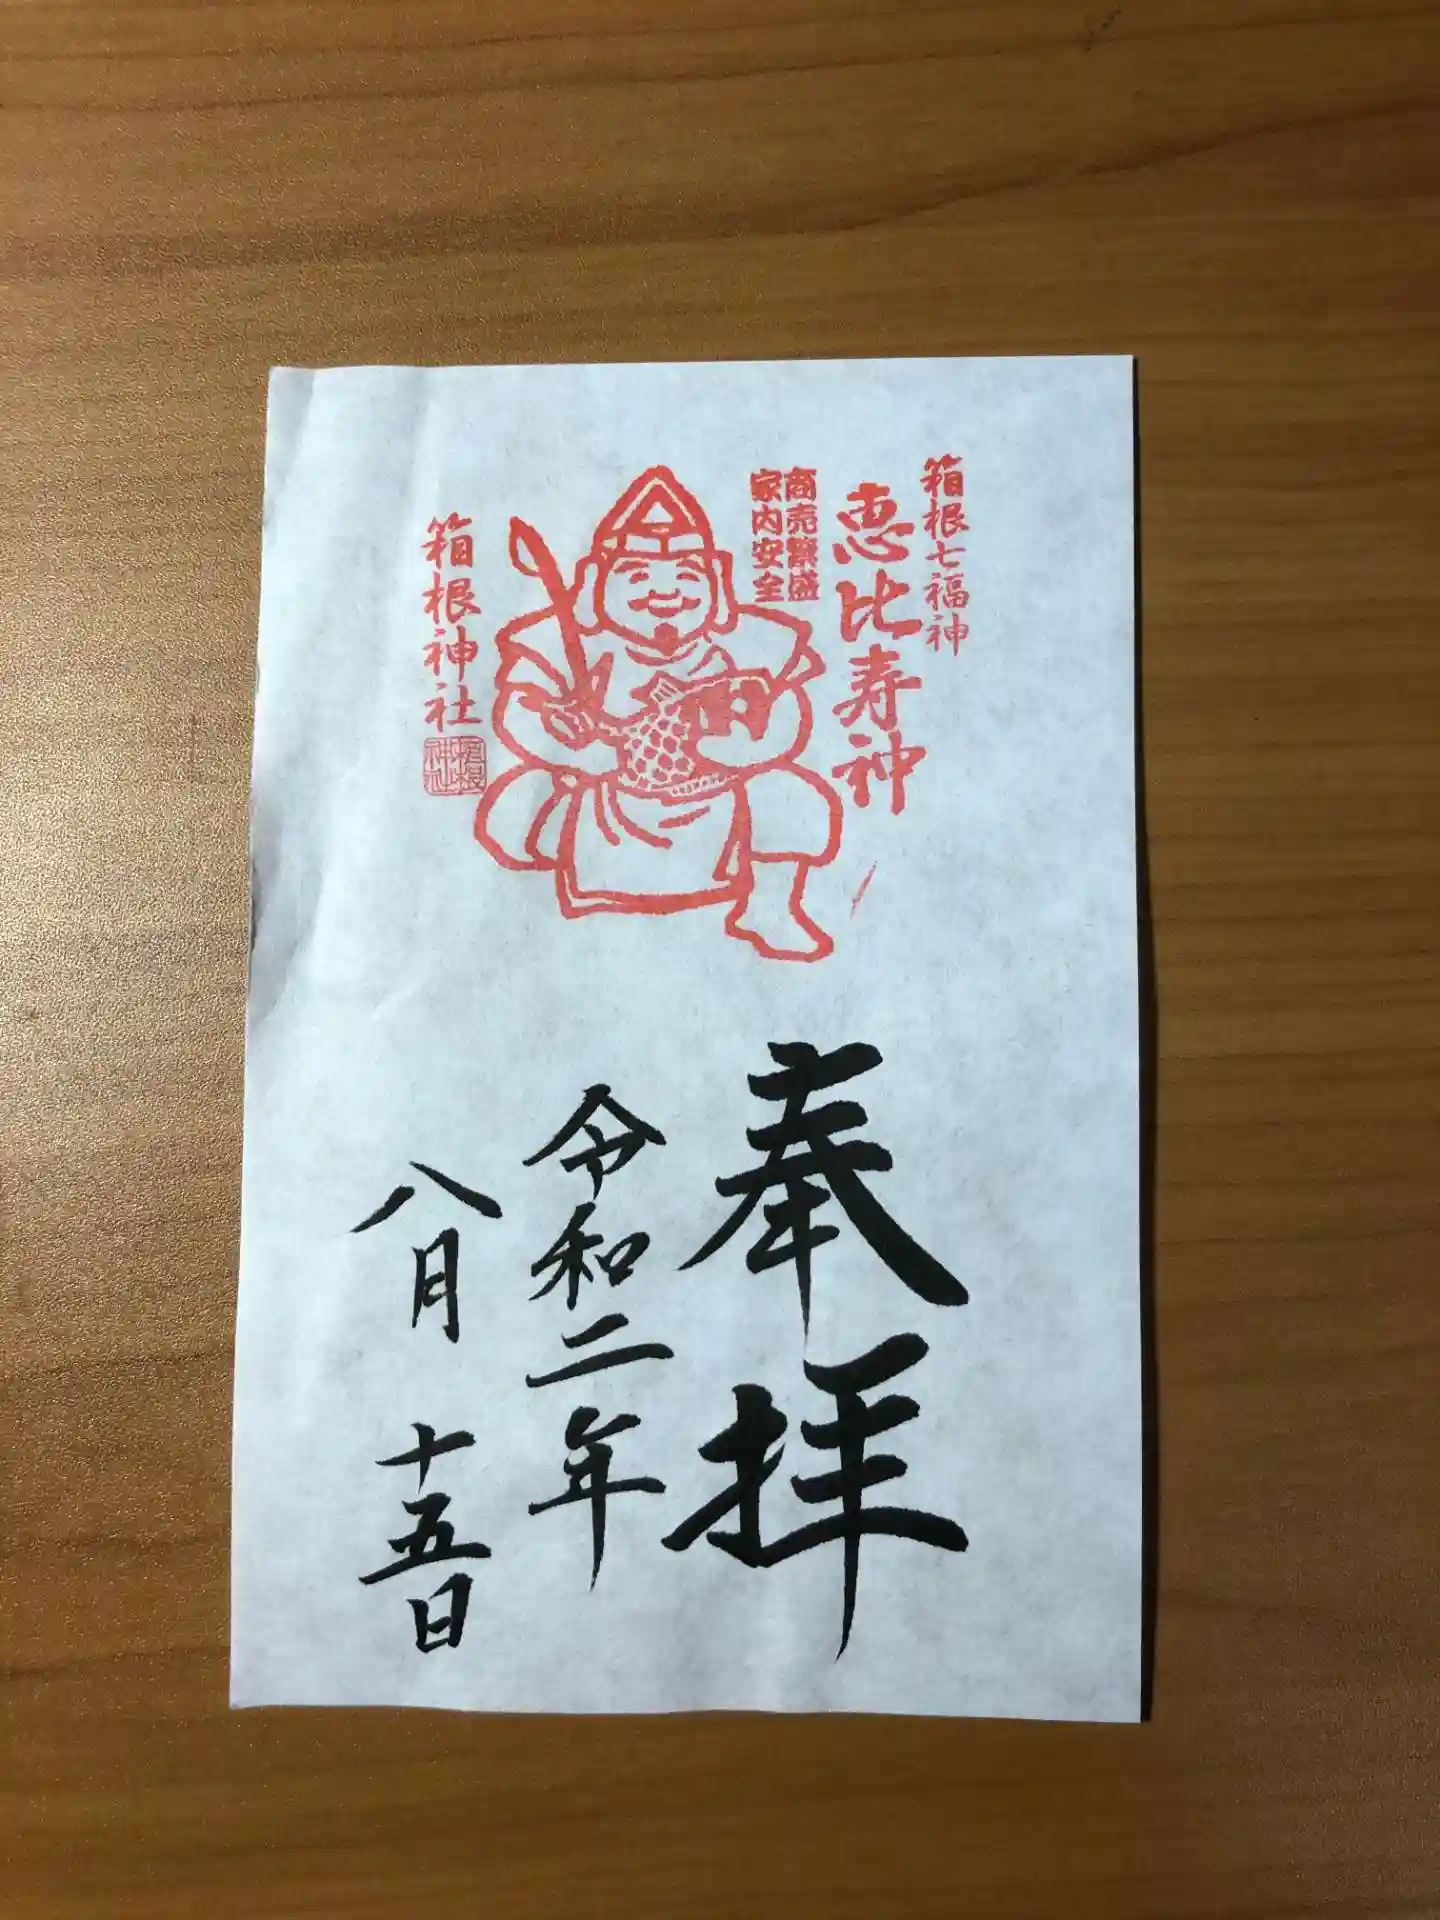 箱根七福神
恵比寿神
商売繁盛
家内安全
箱根神社
箱根
神社
奉拝
令和二年
八月十五日